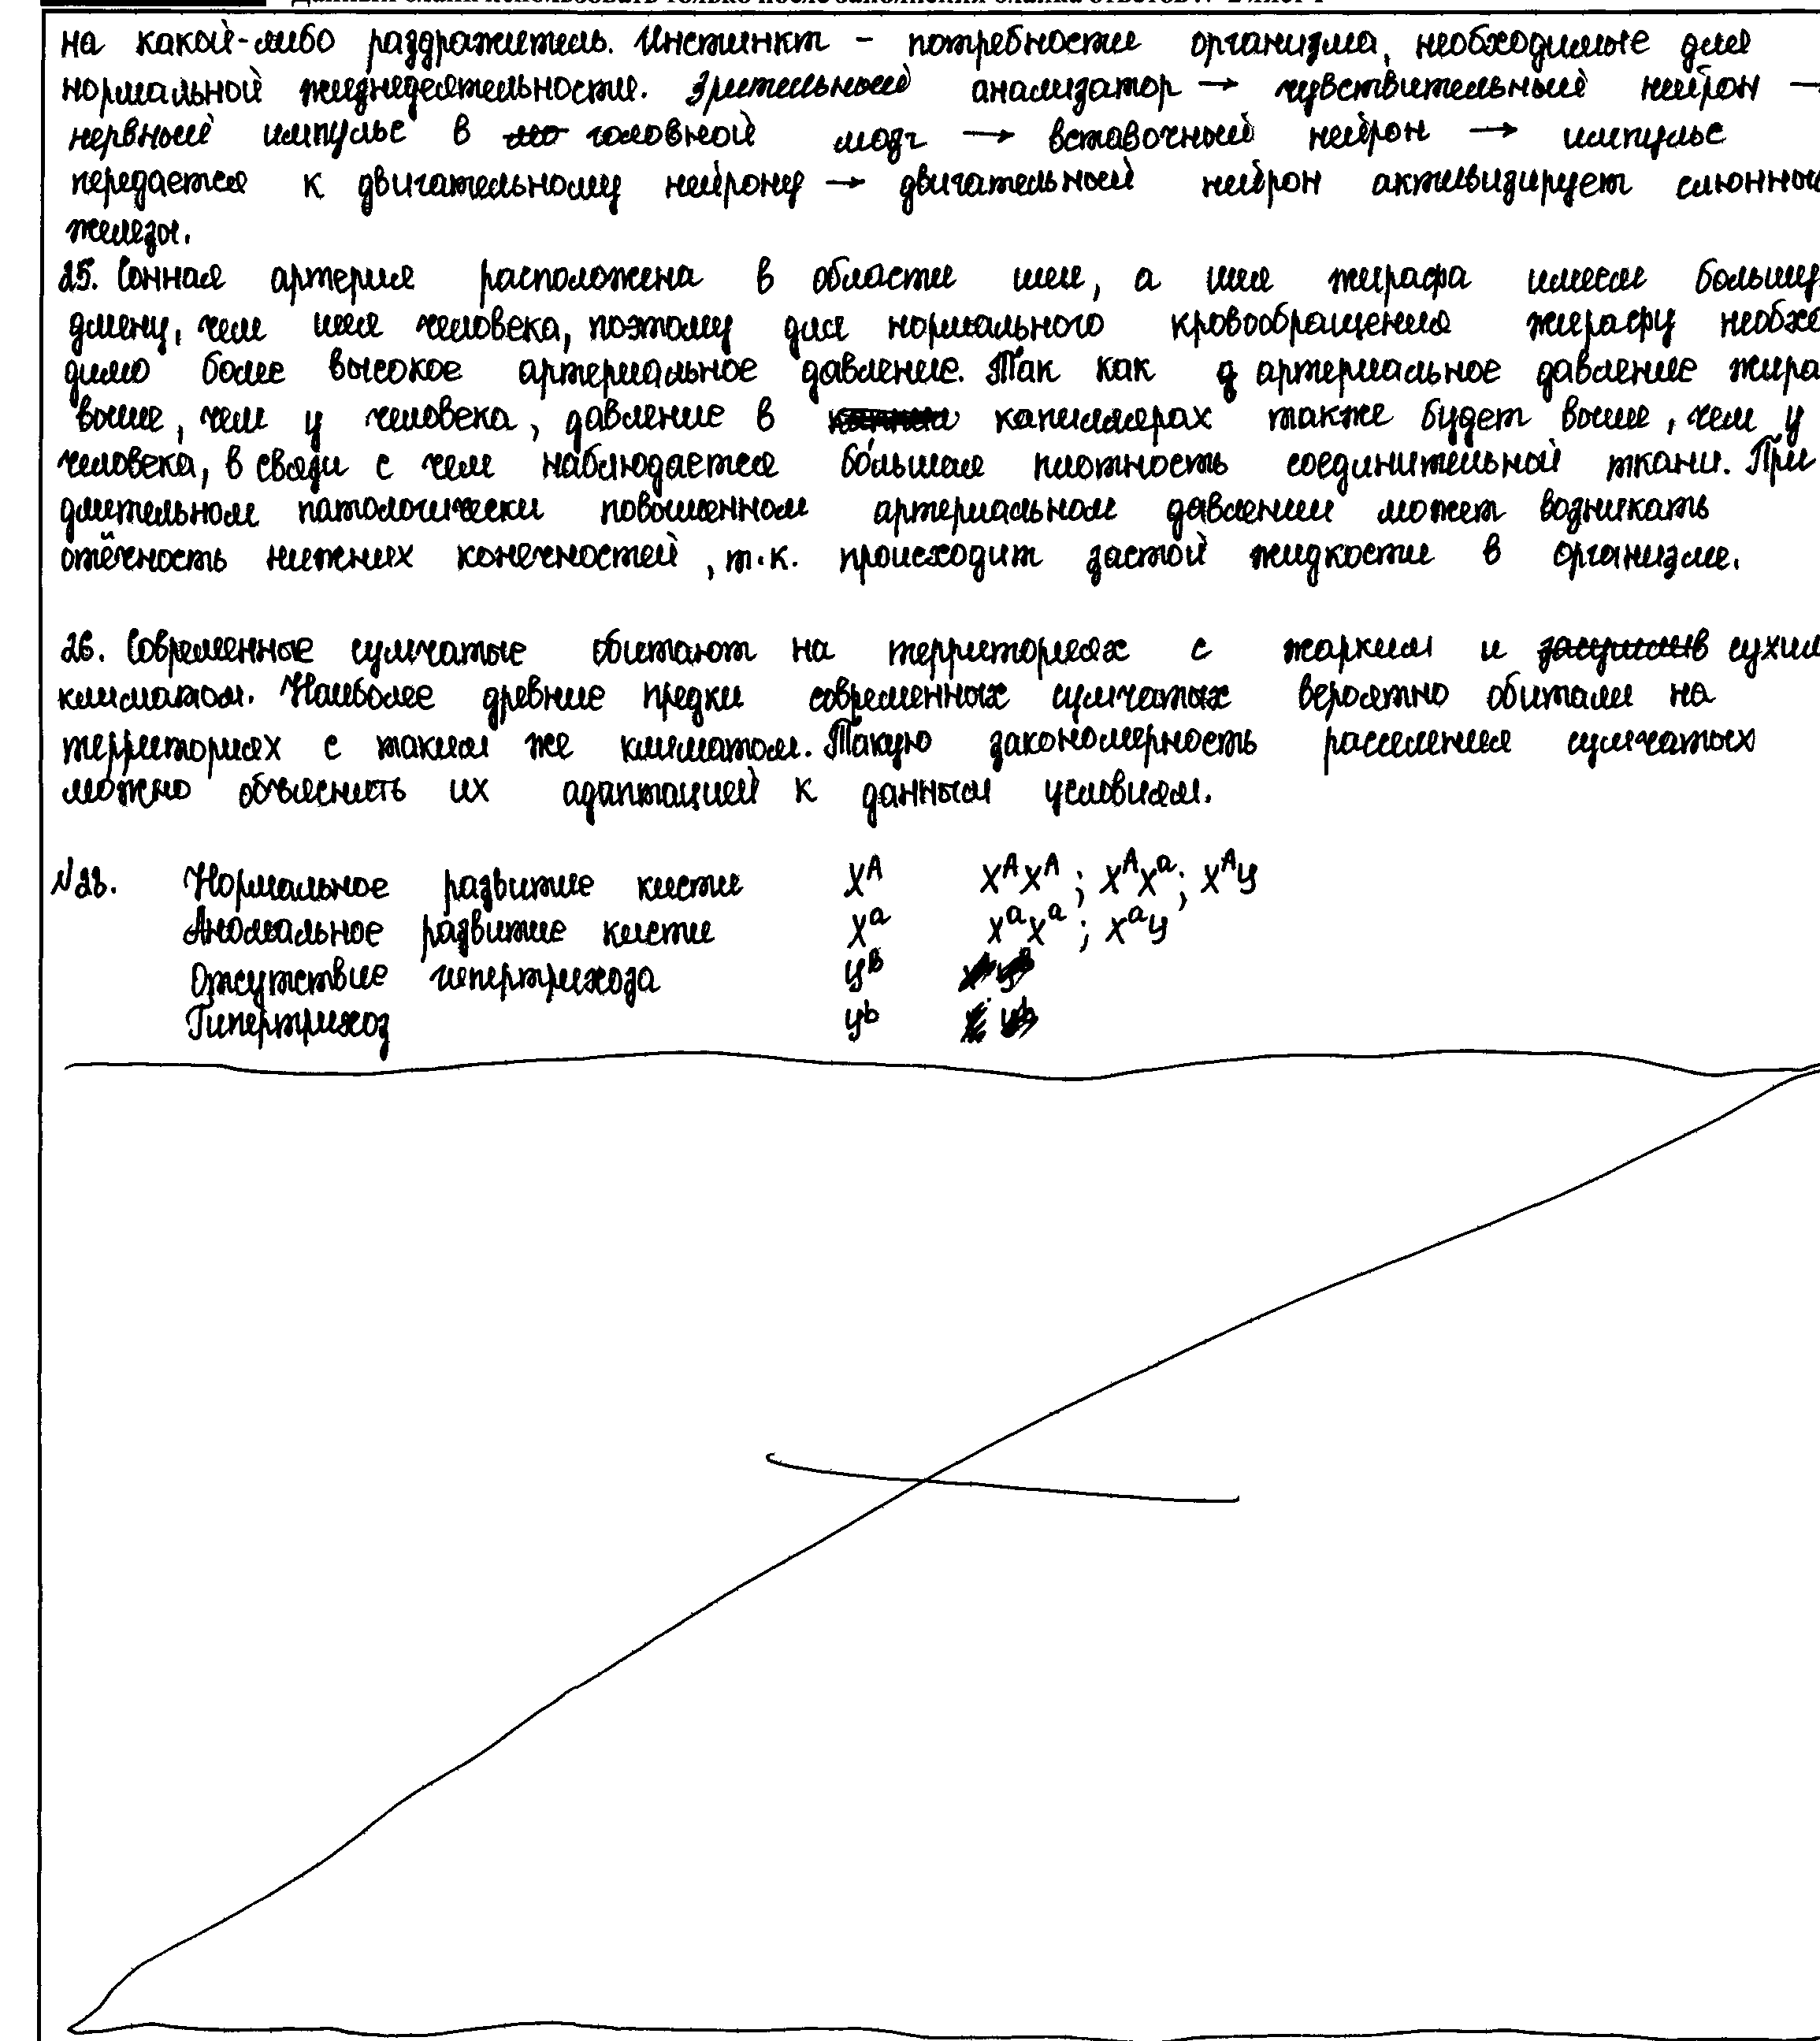 на какой-либо раздражитель. Инстинкт - потребности организма, необходимые для
нормальной жизнедеятельности. Зрительный анализатор → чувствительный нейрон →
нервный импульс в головной мозг → вставочный нейрон → импульс
передается к двигательному нейрону → двигательный нейрон активизирует слюнны
железы.
25. Сонная артерия расположена в области шеи, а шея жирафа имеем большу
длину, чем шея человека, поэтому для нормального кровообращения жирафу необхо
димо более высокое артериальное давление. Так как артериальное давление жира
выше, чем у человека, давление в капиллярах также будет выше, чем у
человека, в связи с чем наблюдается бо́льшая плотность соединительной ткани. При
длительном патологически повышенном артериальном давлении может возникать
отёчность нижних конечностей, т.к. происходит застой жидкости в организме.
26. Современные сумчатые обитают на территориях с жарким и сухим
климатом. Наиболее древние предки современных сумчатых вероятно обитали на
территориях с таким же климатом. Такую закономерность расселения сумчатых
можно объяснить их адаптацией к данным условиям.
№28. Нормальное развитие кисти X^A X^A X^A ; X^A X^a ; X^A У
Аномальное развитие кисти X^a X^a X^a ; X^a У
Отсутствие гипертрихоза У^B
Гипертрихоз У^b